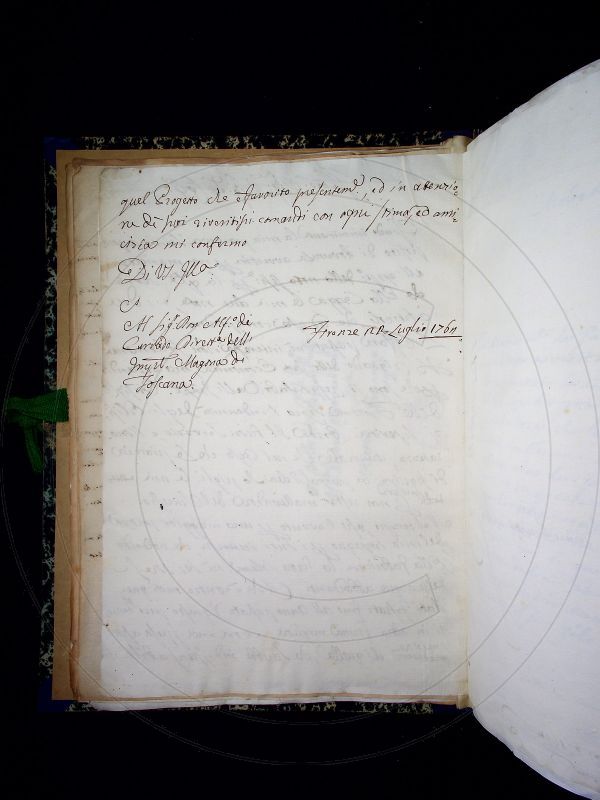 quel Progetto che favorito presentem.e, ed in atenzio=
ne de suoi riveritis.mi comandi con ogni stima, ed ami=
cizia mi confermo
Di VS. Ill.a
Al Sig.r
Curtado Dirett.e dell
Magona di
Toscana
Firenze Luglio 1760